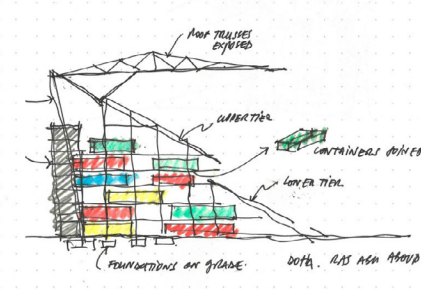 ROOF TRUSSES
EXPOSED
UPPER TIER
CONTAINERS JOINED
LOWER TIER
FOUNDATIONS ON GRADE.
DOHA. RAS ABU ABOUD